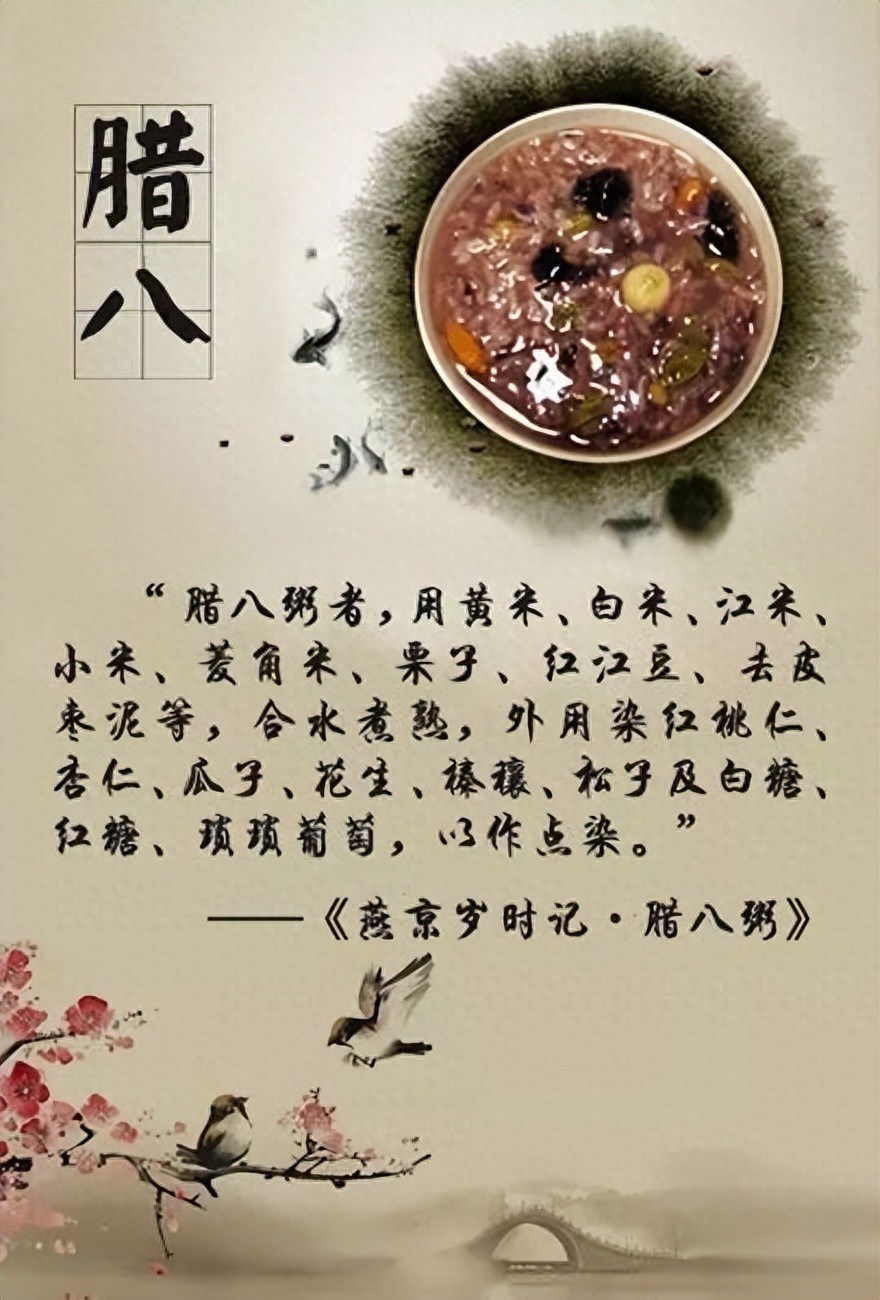 腊八
“腊八粥者,用黄米、白米、江米、
小米、菱角米、栗子、红江豆、去皮
枣泥等,合水煮熟,外用染红桃仁、
杏仁、瓜子、花生、榛穰、松子及白糖、
红糖、琐琐葡萄,以作点染。”
——《燕京岁时记·腊八粥》